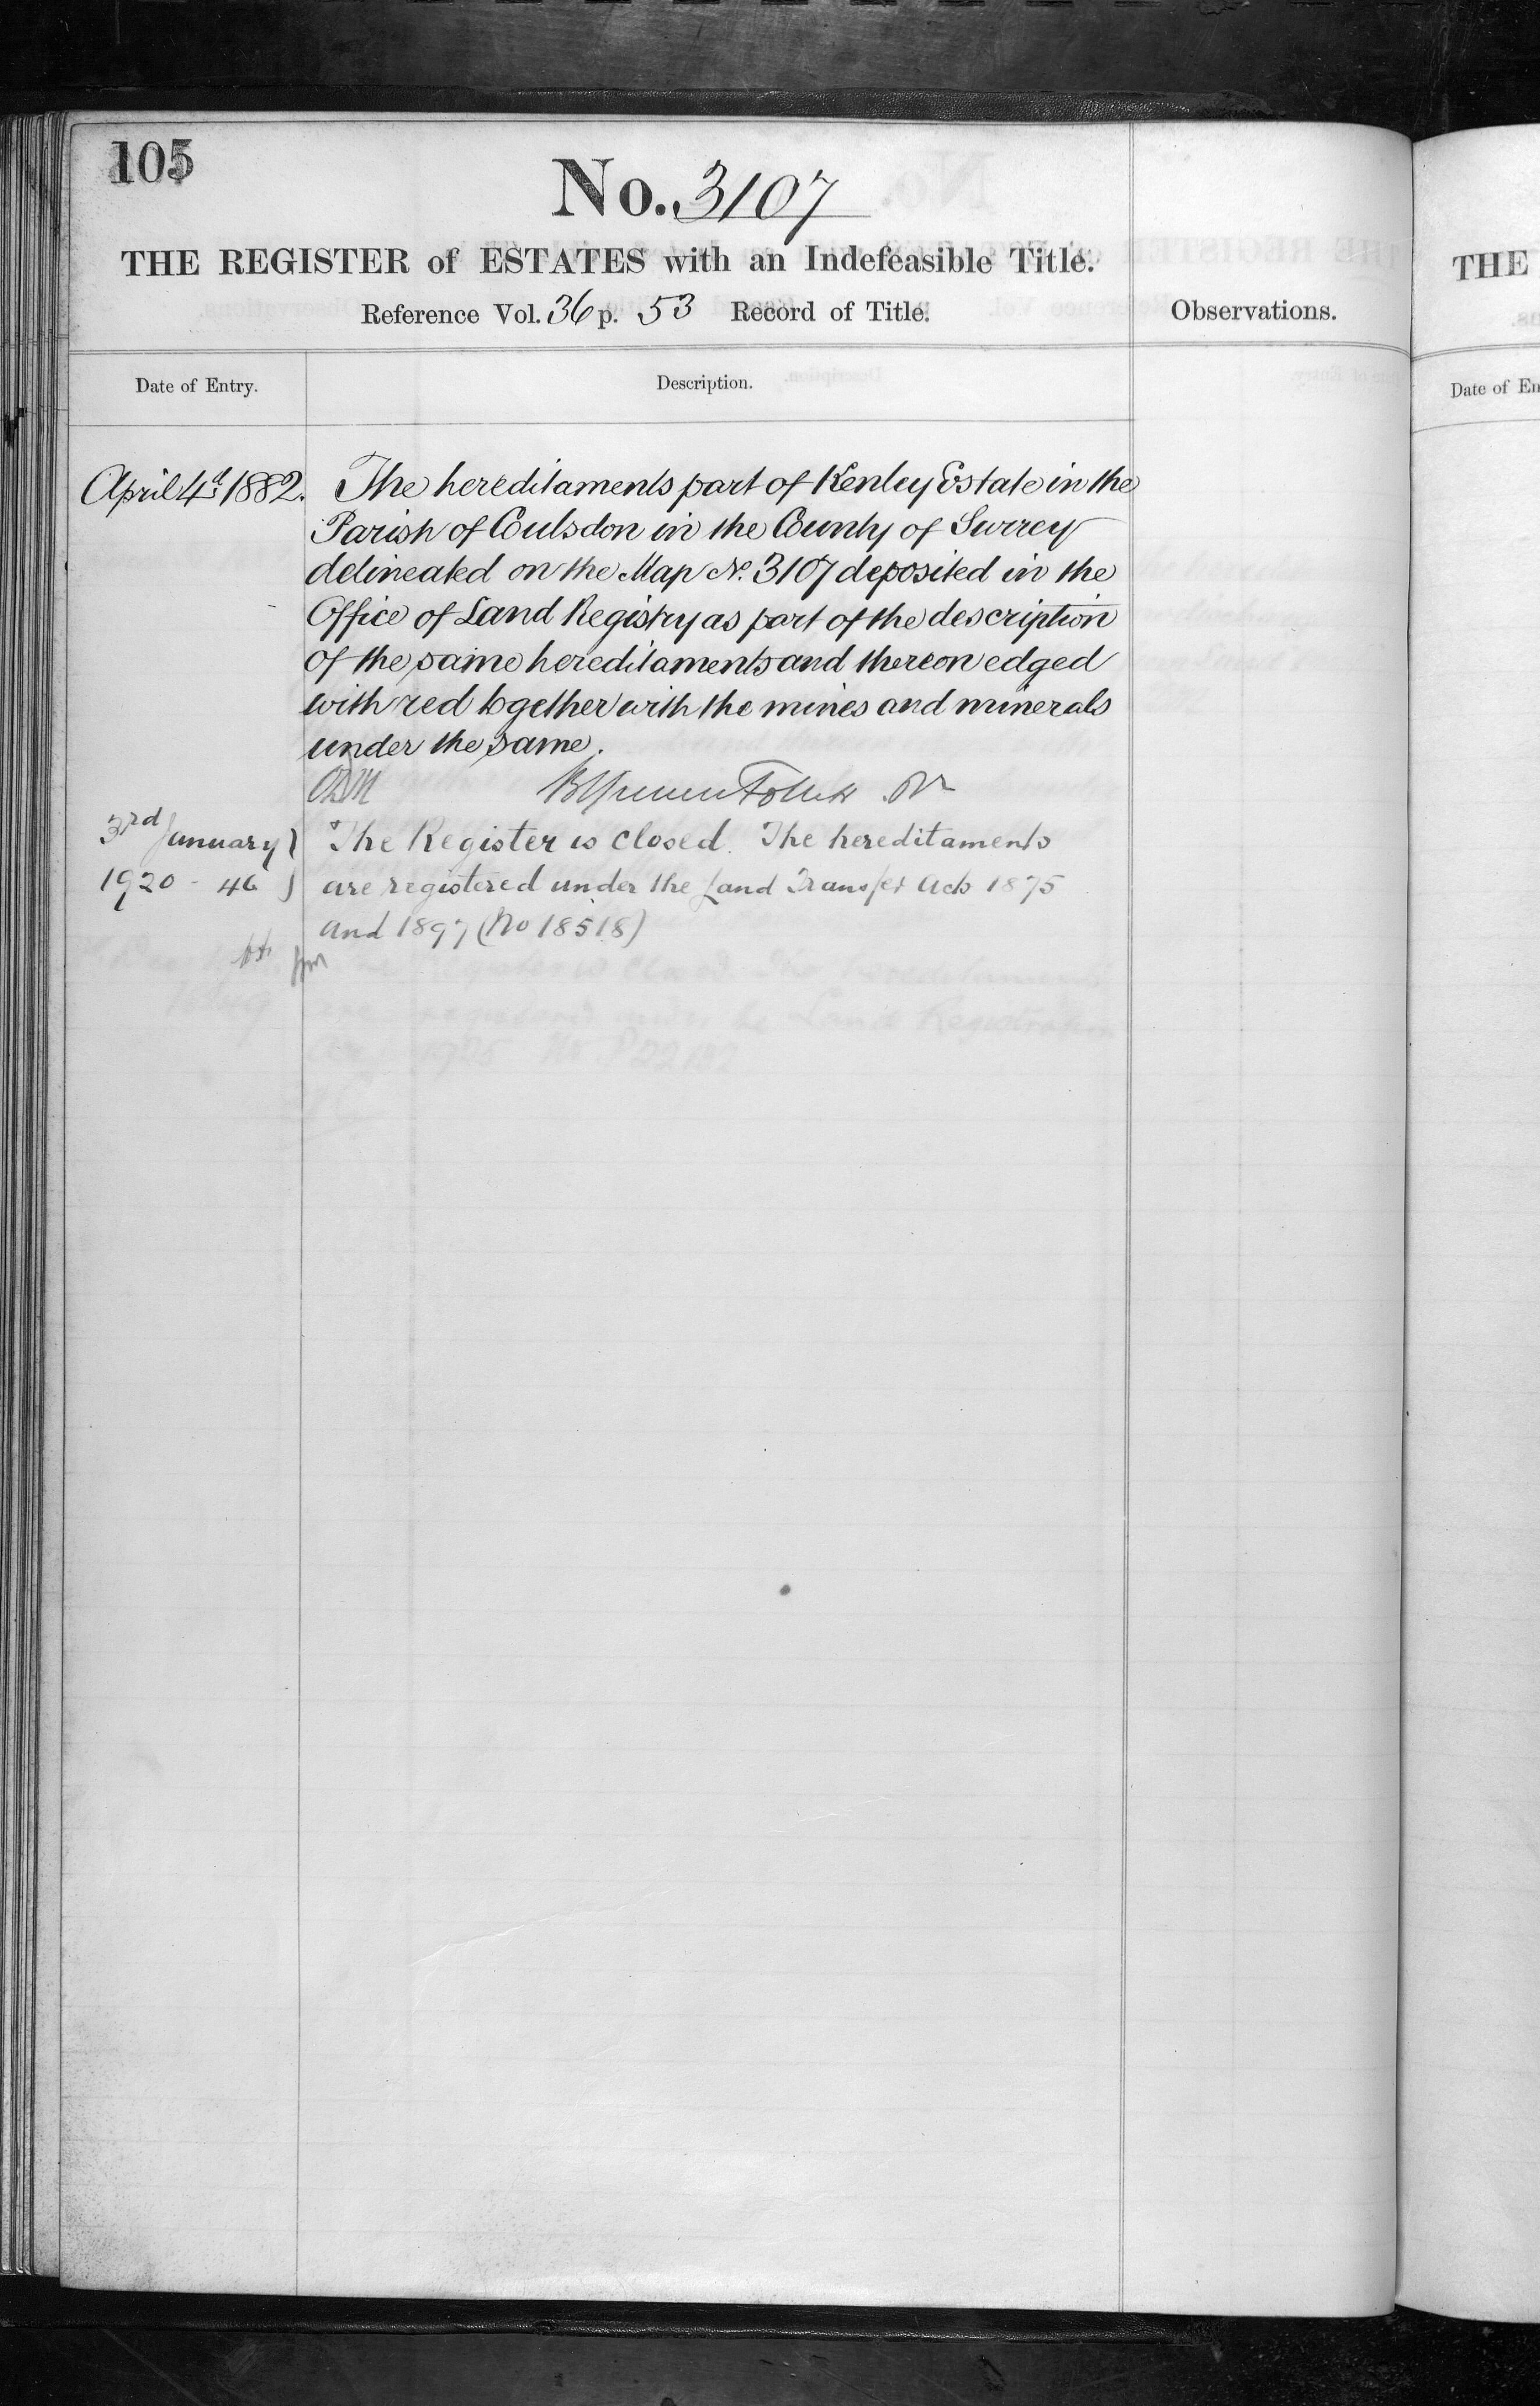 105
No. 3107
THE REGISTER of ESTATES with an Indefeasible Title.
Reference Vol. 36 p. 53 Record of Title.
Observations.
Date of Entry.
Description.
April 4th 1882.
The hereditaments part of Kenley Estate in the
Parish of Coulsdon in the County of Surrey
delineated on the Map No. 3107 deposited in the
Office of Land Registry as part of the description
of the same hereditaments and thereon edged
with red together with the mines and minerals
under the same.
3rd January
1920 - 46
The Register is closed. The hereditaments
are registered under the Land Transfer Acts 1875
and 1897 (No 18518)
THE
Date of En